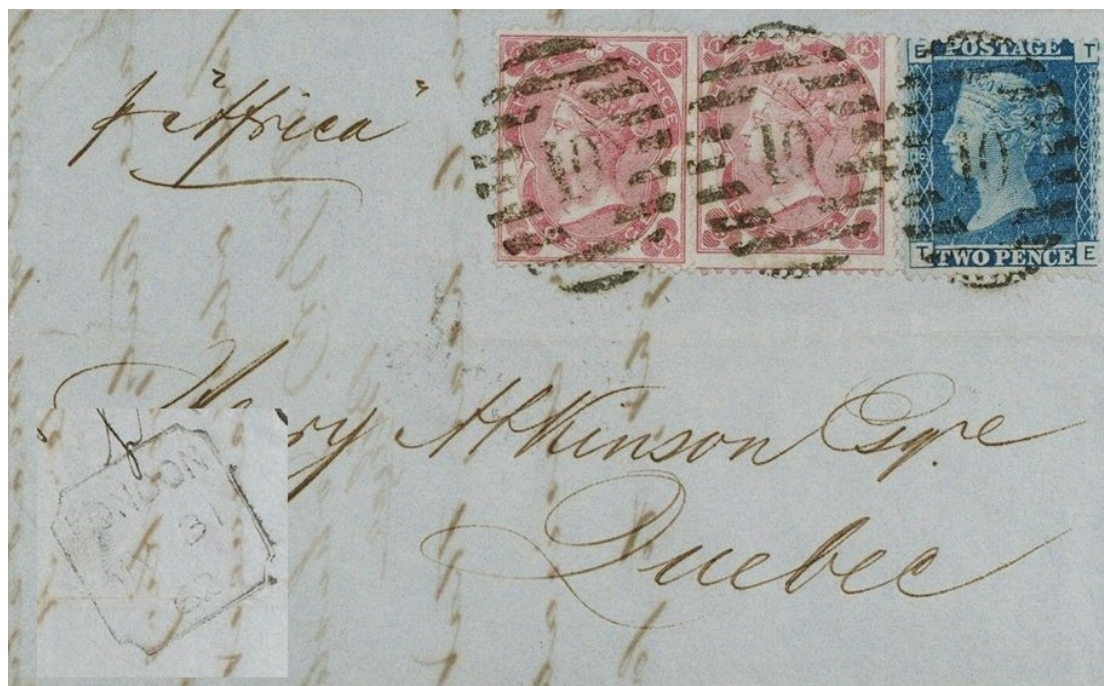 p "Africa"
I K
THREE PENCE
10
10
10
E POSTAGE T
T TWO PENCE E
Henry Atkinson Esqre
Quebec
LONDON
31
62